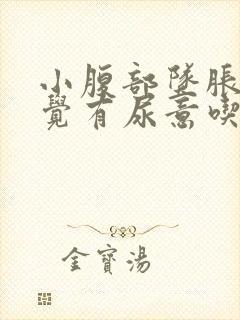 小腹部墜脹
覺有尿意喫
金寶湯